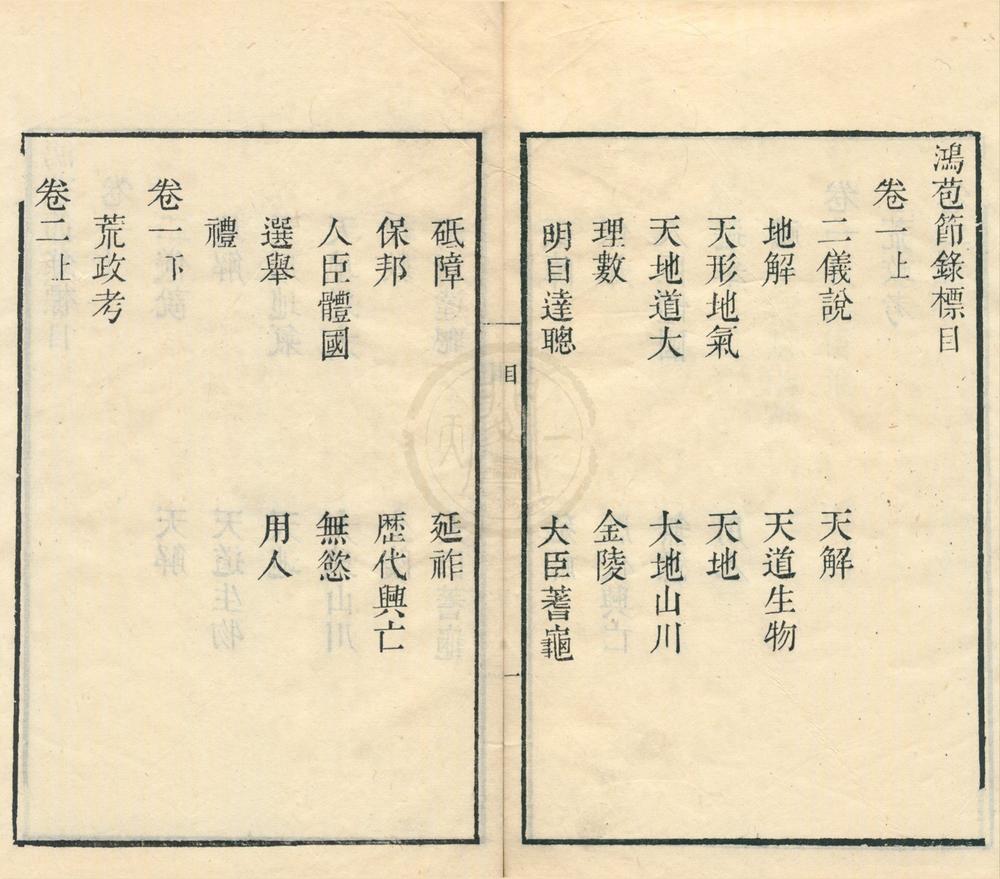 鴻苞節錄標目
卷一上
二儀說　天解
地解　天道生物
天形地氣　天地
天地道大　大地山川
理數　金陵
明目達聰　大臣蓍龜
目
一
砥障　延祚
保邦　歴代興亡
人臣體國　無慾
選舉　用人
禮
卷一下
荒政考
卷二上